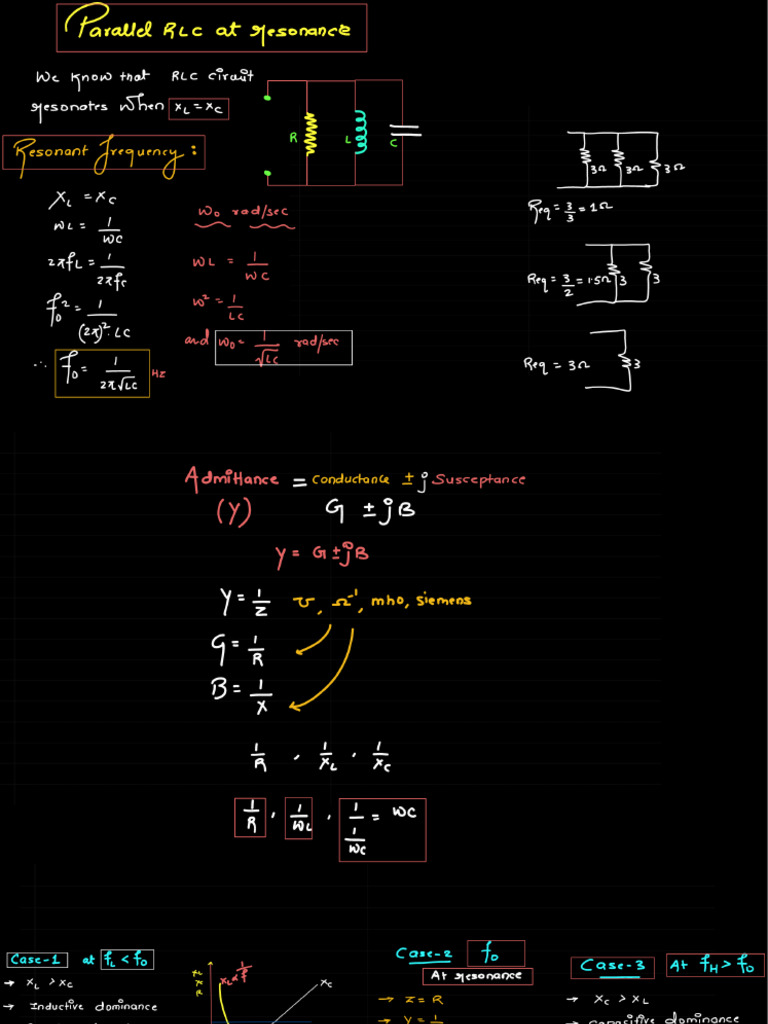 Parallel RLC at resonance
We know that RLC circuit
resonates when X_L = X_C
R L C
Resonant frequency :
X_L = X_C
ωL = 1/ωC
2πfL = 1/2πfC
f₀² = 1/(2π)²·LC
∴ f₀ = 1/2π√LC Hz
ω₀ rad/sec
ωL = 1/ωC
ω² = 1/LC
and ω₀ = 1/√LC rad/sec
3Ω 3Ω 3Ω
Req = 3/3 = 1Ω
Req = 3/2 = 1.5Ω 3 3
Req = 3Ω 3
Admittance = Conductance ± j Susceptance
(Y) G ± jB
Y = G ± jB
Y = 1/Z ℧, Ω⁻¹, mho, siemens
G = 1/R
B = 1/X
1/R , 1/X_L , 1/X_C
1/R , 1/ωL , 1/(1/ωC) = ωC
Case-1 at f_L < f₀
→ X_L > X_C
→ Inductive dominance
X_L ∝ 1/f
X_C
Case-2 f₀
At resonance
→ Z = R
→ Y = 1
Case-3 At f_H > f₀
→ X_C > X_L
→ capacitive dominance